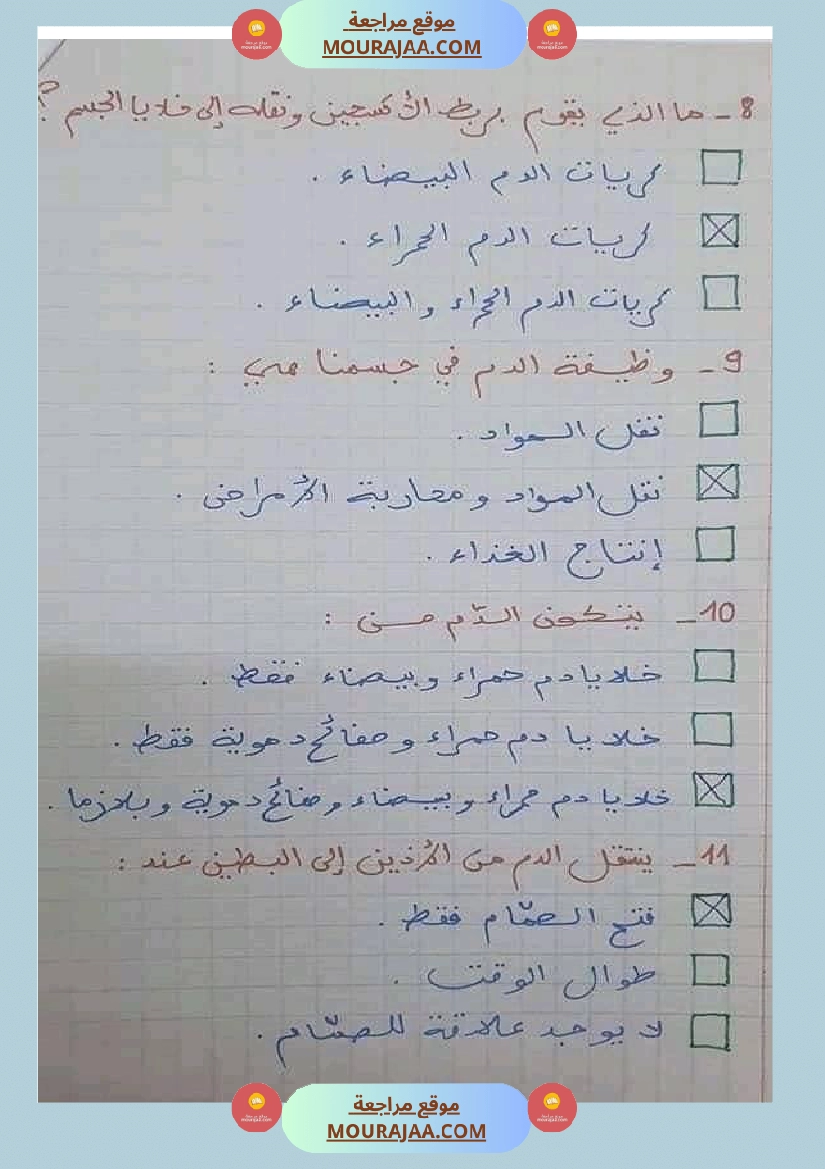 موقع مراجعة
MOURAJAA.COM
8 - ما الذي يقوم بربط الأكسجين ونقله إلى خلايا الجسم ؟
كريات الدم البيضاء .
كريات الدم الحمراء .
كريات الدم الحمراء والبيضاء .
9 - وظيفة الدم في جسمنا هي :
نقل المواد .
نقل المواد ومحاربة الأمراض .
إنتاج الغذاء .
10 - يتكون الدّم من :
خلايا دم حمراء وبيضاء فقط .
خلايا دم حمراء وصفائح دموية فقط .
خلايا دم حمراء وبيضاء وصفائح دموية وبلازما .
11 - ينتقل الدم من الأذين إلى البطين عند :
فتح الصمّام فقط .
طوال الوقت .
لا يوجد علاقة للصمّام .
موقع مراجعة
MOURAJAA.COM